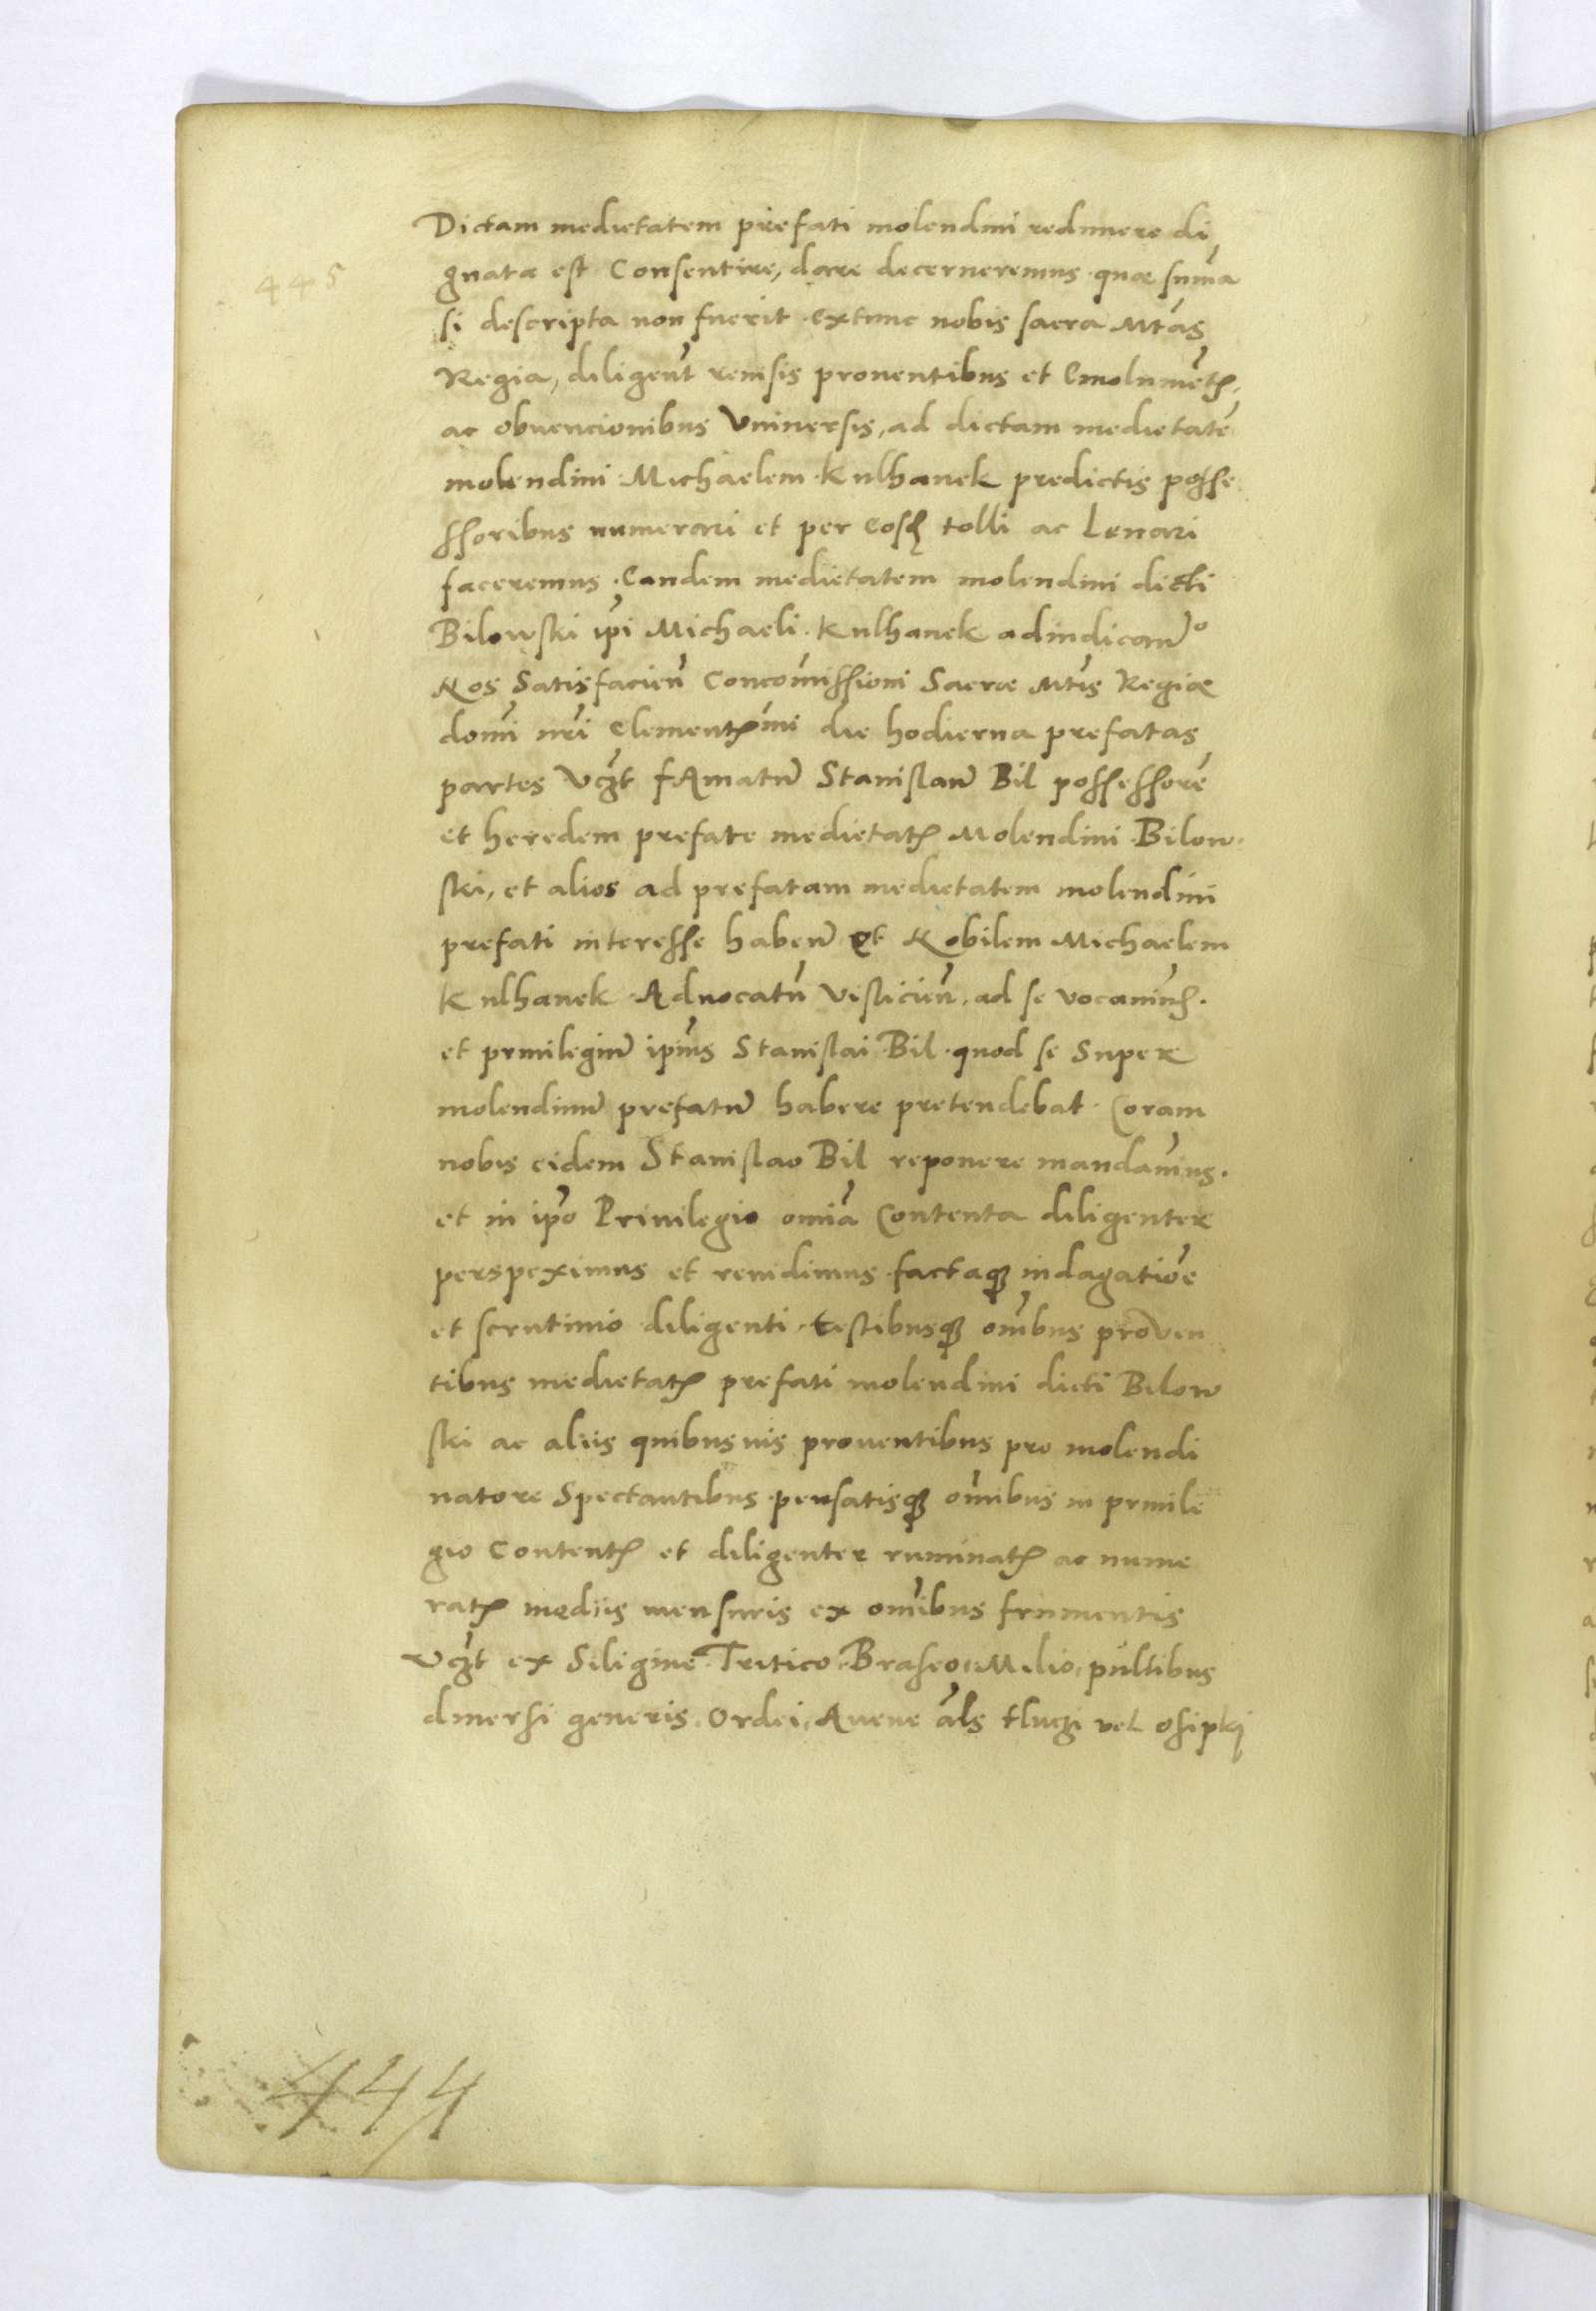 Dictam medietatem prefati molendini redimere di
gnata est Consentire, dare decerneremus quæ suma
445
si descripta non fuerit extunc nobis sacra Mtas
Regia, diligent reuisis prouentibus et Emolumet,
ac obuencionibus Vniuersis, ad dictam medietate
molendini Michaelem Kulhanek predictis posse
ssoribus numerari et per eosd tolli ac Leuari
faceremus. Eandem medietatem molendini dicti
Bilowski ipi Michaeli Kulhanek adiudicam
Nos Satisfacien Concomissioni Sacræ Mtis Regiæ
domi nri Clementmi die hodierna prefatas
partes Vczt fAmatu Stanislau Bil possessore
et heredem prefate medietat Molendini Bilow
ski, et alios ad prefatam medietatem molendini
prefati interesse haben et Nobilem Michaelem
Kulhanek Aduocatu Visliciен, ad se vocauim.
et priuilegiu ipius Stanislai Bil quod se Super
molendinu prefatu habere pretendebat Coram
nobis eidem Stanislao Bil reponere mandauimus.
et in ipo Priuilegio omia Contenta diligenter
perspeximus et reuidimus factaq indagatioe
et scrutinio diligenti testibusq omibus proven
tibus medietat prefati molendini dicti Bilow
ski ac aliis quibusuis prouentibus pro molendi
natore Spectantibus pensatisq omibus in priuile
gio Content et diligenter ruminat ac nume
rat mediis mensuris ex omibus frumentis
Vczt ex Siligine Tritico Braseo Milio pultibus
diuersi generis Ordei, Auene als tluczi vel osipki
444